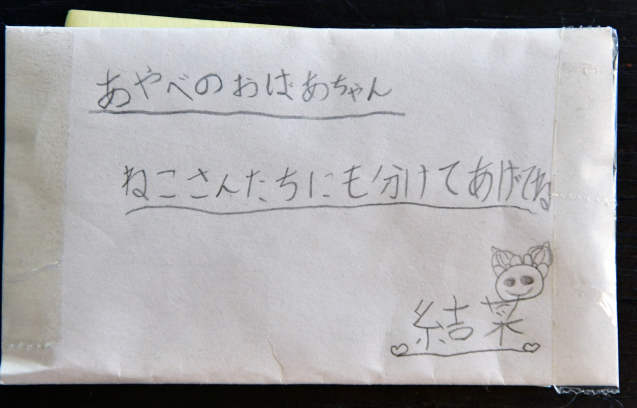 あやべのおばあちゃん
ねこさんたちにも分けてあげてね
結菜